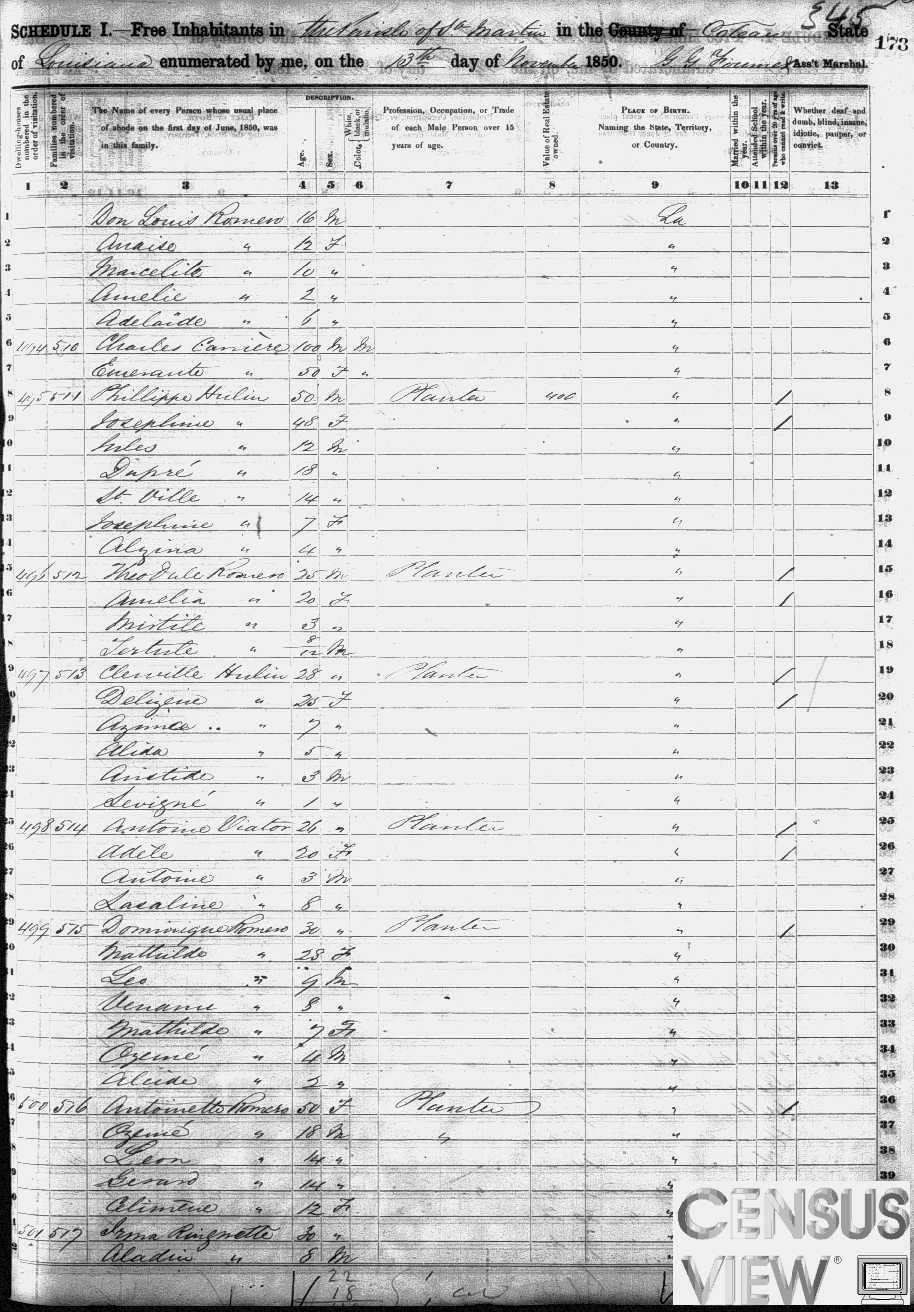 345
SCHEDULE I.—Free Inhabitants in the Parish of St Martin in the County of Coteau State 173
of Louisiana enumerated by me, on the 13th day of November 1850. Ass't Marshal.
Dwelling-houses numbered in the order of visitation.
Families numbered in the order of visitation.
The Name of every Person whose usual place of abode on the first day of June, 1850, was in this family.
DESCRIPTION.
Age.
Sex.
Color, White, black, or mulatto.
Profession, Occupation, or Trade of each Male Person over 15 years of age.
Value of Real Estate owned.
PLACE OF BIRTH. Naming the State, Territory, or Country.
Married within the year.
Attended School within the year.
Persons over 20 y'rs of age who cannot read & write.
Whether deaf and dumb, blind, insane, idiotic, pauper, or convict.
1 2 3 4 5 6 7 8 9 10 11 12 13
1 Don Louis Romero 16 M La 1
2 Anaise " 12 F " 2
3 Marcelite " 10 " " 3
4 Amelie " 2 " " 4
5 Adelaïde " 6 " " 5
6 494 510 Charles Carrière 100 M M " 6
7 Emerante " 50 F " " 7
8 495 511 Phillippe Hulin 50 M Planter 400 " / 8
9 Josephine " 48 F " / 9
10 Jules " 12 M " 10
11 Dupré " 18 " " 11
12 St. Ville " 14 " " 12
13 Josephine " 7 F " 13
14 Alzina " 4 " " 14
15 496 512 Theodule Romero 25 M Planter " / 15
16 Amelia " 20 F " / 16
17 Mistile " 3 " " 17
18 Tertule " 8/12 M " 18
19 497 513 Clerville Hulin 28 " Planter " / 19
20 Delizene " 25 F " / 20
21 Azimee " 7 " " 21
22 Alida " 5 " " 22
23 Aristide " 3 M " 23
24 Sevigné " 1 " " 24
25 498 514 Antoine Viator 26 " Planter " / 25
26 Adèle " 20 F " / 26
27 Antoine " 3 M " 27
28 Lasaline " 8 " " 28
29 499 515 Dominique Romero 30 " Planter " / 29
30 Mathilde " 28 F " 30
31 Leo " 9 M " 31
32 Vename " 8 " " 32
33 Mathilde " 7 F " 33
34 Ozemé " 4 M " 34
35 Alcide " 2 " " 35
36 500 516 Antoinette Romero 50 F Planter " / 36
37 Ozemé " 18 M " " 37
38 Leon " 14 " " 38
39 Gerard " 14 " " 39
Climène " 12 F "
501 517 Irma Ringnette 30 " "
Aladin " 8 M "
22
18
CENSUS
VIEW®